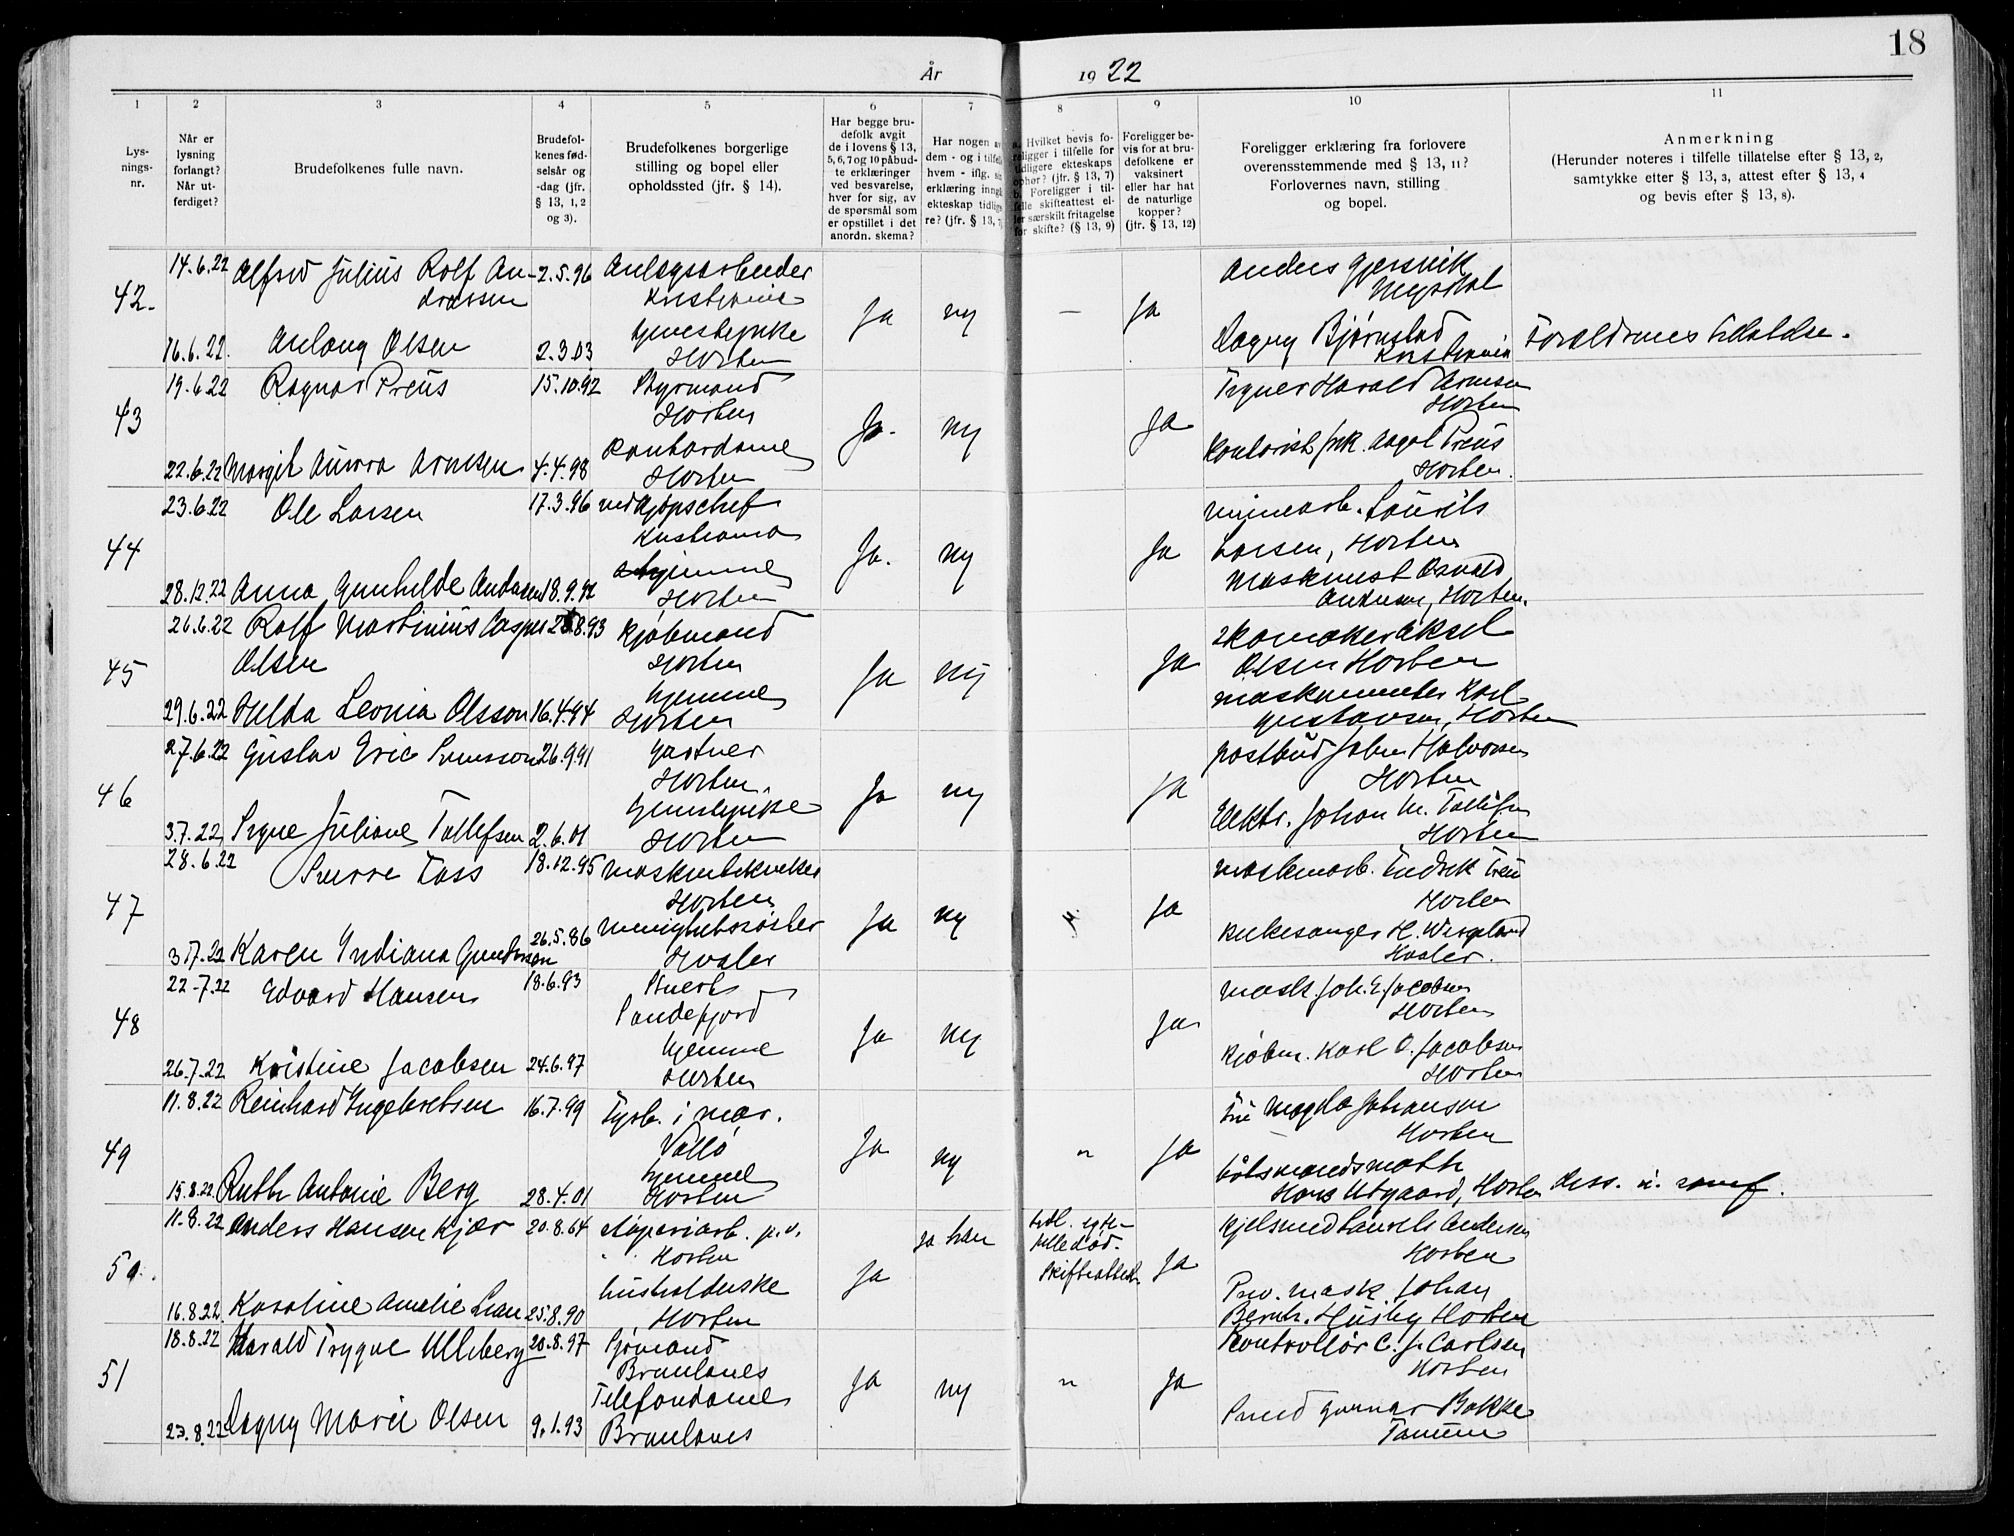 18
År 1922
1 2 3 4 5 6 7 8 9 10 11
Lys-
nings-
nr.
Når er
lysning
forlangt?
Når ut-
ferdiget?
Brudefolkenes fulle navn.
Brudefol-
kenes fød-
selsår og
-dag (jfr.
§ 13, 1, 2
og 3).
Brudefolkenes borgerlige
stilling og bopel eller
opholdssted (jfr. § 14).
Har begge bru-
defolk avgit
de i lovens § 13,
5, 6, 7 og 10 påbud-
te erklæringer
ved besvarelse,
hver for sig, av
de spørsmål som
er opstillet i det
anordn. skema?
Har nogen av
dem - og i tilfelle
hvem - iflg.
erklæring inngå
ekteskap tidlige
re? (jfr. § 13,
a. Hvilket bevis fo-
religger i tilfelle for
tidligere ekteskaps
ophør? (jfr. § 13, 7)
b. Foreligger i til-
felle skifteattest el-
ler særskilt fritagelse
for skifte? (§ 13, 9)
Foreligger be-
vis for at bru-
defolkene er
vaksinert
eller har hat
de naturlige
kopper?
(jfr. § 13, 12)
Foreligger erklæring fra forlovere
overensstemmende med § 13, 11?
Forlovernes navn, stilling
og bopel.
Anmerkning
(Herunder noteres i tilfelle tillatelse efter § 13, 2,
samtykke etter § 13, 3, attest efter § 13, 4
og bevis efter § 13, 8).
42.
14.6.22 Alfred Julius Rolf An-
drassen 2.5.96 Anlægsarbeider
Kristiania
Ja ny — Ja
Anders Gjersvik
Mysdal
16.6.22. Aulaug Olsen 2.3.03 tjenestepike
Horten
Dagny Bjørnstad
Kristiania
Foreldrenes tilladelse.
43
19.6.22 Ragnar Preus 15.10.92 Styrmand
Horten
Ja. ny Ja
Trygve Harald Arnesen
Horten
22.6.22 Margit Aurora Arnesen 4.4.98 Kontordame
Horten
Kontorist frk. Aagot Preus
Horten.
44
23.6.22 Ole Larsen 17.3.96
Kristiania
Ja. ny Ja
minearb. Laurits
Larsen, Horten
28.12.22 Anna Gunhilde Andersen 18.9.92 hjemme
Horten
Maskinist Osvald
Andersen, Horten.
45
26.6.22 Rolf Martinius Casper
Olsen
8.93 Kjøbmand
Horten
Ja ny Ja
Skomaker Aksel
Olsen Horten
29.6.22 Hilda Leonia Olsson 16.4.94 hjemme
Horten
Karl
Gustavsen, Horten
46
27.6.22 Gustav Eric Svensson 26.9.91 Gartner
Horten
Ja ny Ja
postbud Johan Halvorsen
Horten
3.7.22 Signe Juliane Tollefsen 2.6.01 tjenestepike
Horten
Elektr. Johan M. Tollefsen
Horten
47
28.6.22 Sverre Foss 18.12.95 maskintekniker
Horten
Ja ny Ja
maskinarb.
Horten
3.7.22 Karen Indiana Gundersen 26.5.86 menighetssøster
Hvaler
kirkesanger H. Wergeland
Hvaler.
48
22.7.22 Edvard Hansen 18.6.93
Sandefjord
Ja ny Ja
mask. Joh. E. Jacobsen
Horten
26.7.22 Kristine Jacobsen 24.6.97 hjemme
Horten
kjøbm. Karl O. Jacobsen
Horten
49
11.8.22 Reinhard Ingebretsen 16.7.99 Fyrb. i mar.
Vallø
Ja ny " Ja
Fru Magda Johansen
Horten
15.8.22 Ruth Antonie Berg 28.4.01 hjemme
Horten
båtsmandsmath
Hans Utgaard, Horten
50.
11.8.22 Anders Hansen Kjær 20.8.64 støperiarb. p.v.
Horten
Ja ja han
Skifteattest. Ja
kjelsmed Laurits Andersen
Horten
16.8.22 Karoline Amelie Lian 25.8.90 husholderske
Horten
Prov. mask. Johan
Bernh. Husby Horten
51
18.8.22 Harald Trygve Ulleberg 20.8.97 Sjømand
Brunlanes
Ja ny " Ja
Kontrollør C. J. Carlsen
Horten
23.8.22 Dagny Marie Olsen 9.1.93 Telefondame
Brunlanes
Smed Gunnar Bakke
Tanum